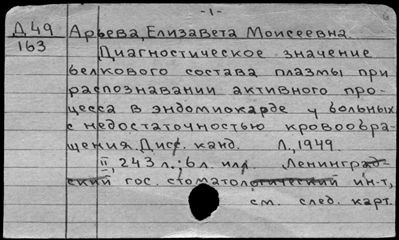 -1-
Д 49 Арьева, Елизавета Моисеевна.
163 Диагностическое значение
белкового состава плазмы при
распознавании активного про-
цесса в эндомиокарде у больных
с недостаточностью кровообра-
щения. Дисс. канд. Л., 1949.
II, 243 л.; 6 л. илл. Ленинград-
ский гос. стоматологический ин-т,
см. след. карт.